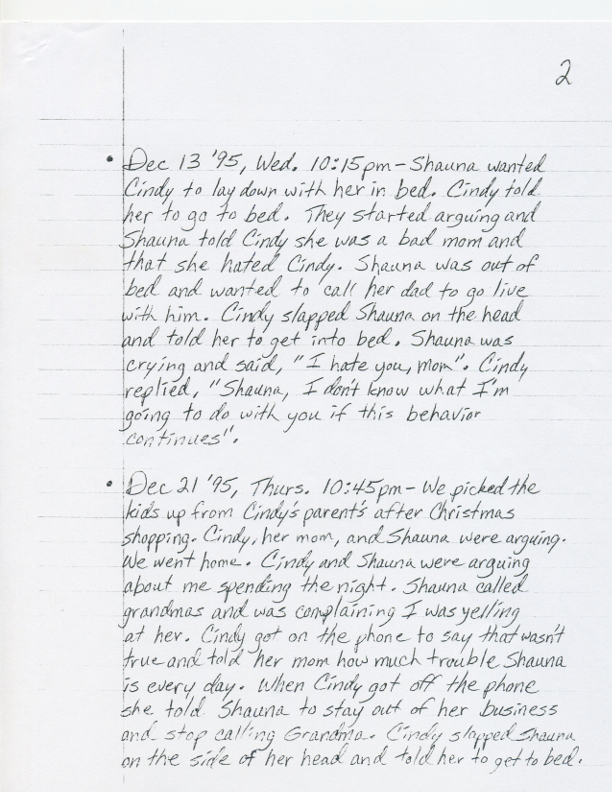 2
• Dec 13 '95, Wed. 10:15pm - Shauna wanted
Cindy to lay down with her in bed. Cindy told
her to go to bed. They started arguing and
Shauna told Cindy she was a bad mom and
that she hated Cindy. Shauna was out of
bed and wanted to call her dad to go live
with him. Cindy slapped Shauna on the head
and told her to get into bed. Shauna was
crying and said, "I hate you, mom". Cindy
replied, "Shauna, I don't know what I'm
going to do with you if this behavior
continues".
• Dec 21 '95, Thurs. 10:45pm - We picked the
kids up from Cindy's parent's after Christmas
shopping. Cindy, her mom, and Shauna were arguing.
We went home. Cindy and Shauna were arguing
about me spending the night. Shauna called
grandmas and was complaining I was yelling
at her. Cindy got on the phone to say that wasn't
true and told her mom how much trouble Shauna
is every day. When Cindy got off the phone
she told Shauna to stay out of her business
and stop calling Grandma. Cindy slapped Shauna
on the side of her head and told her to get to bed.